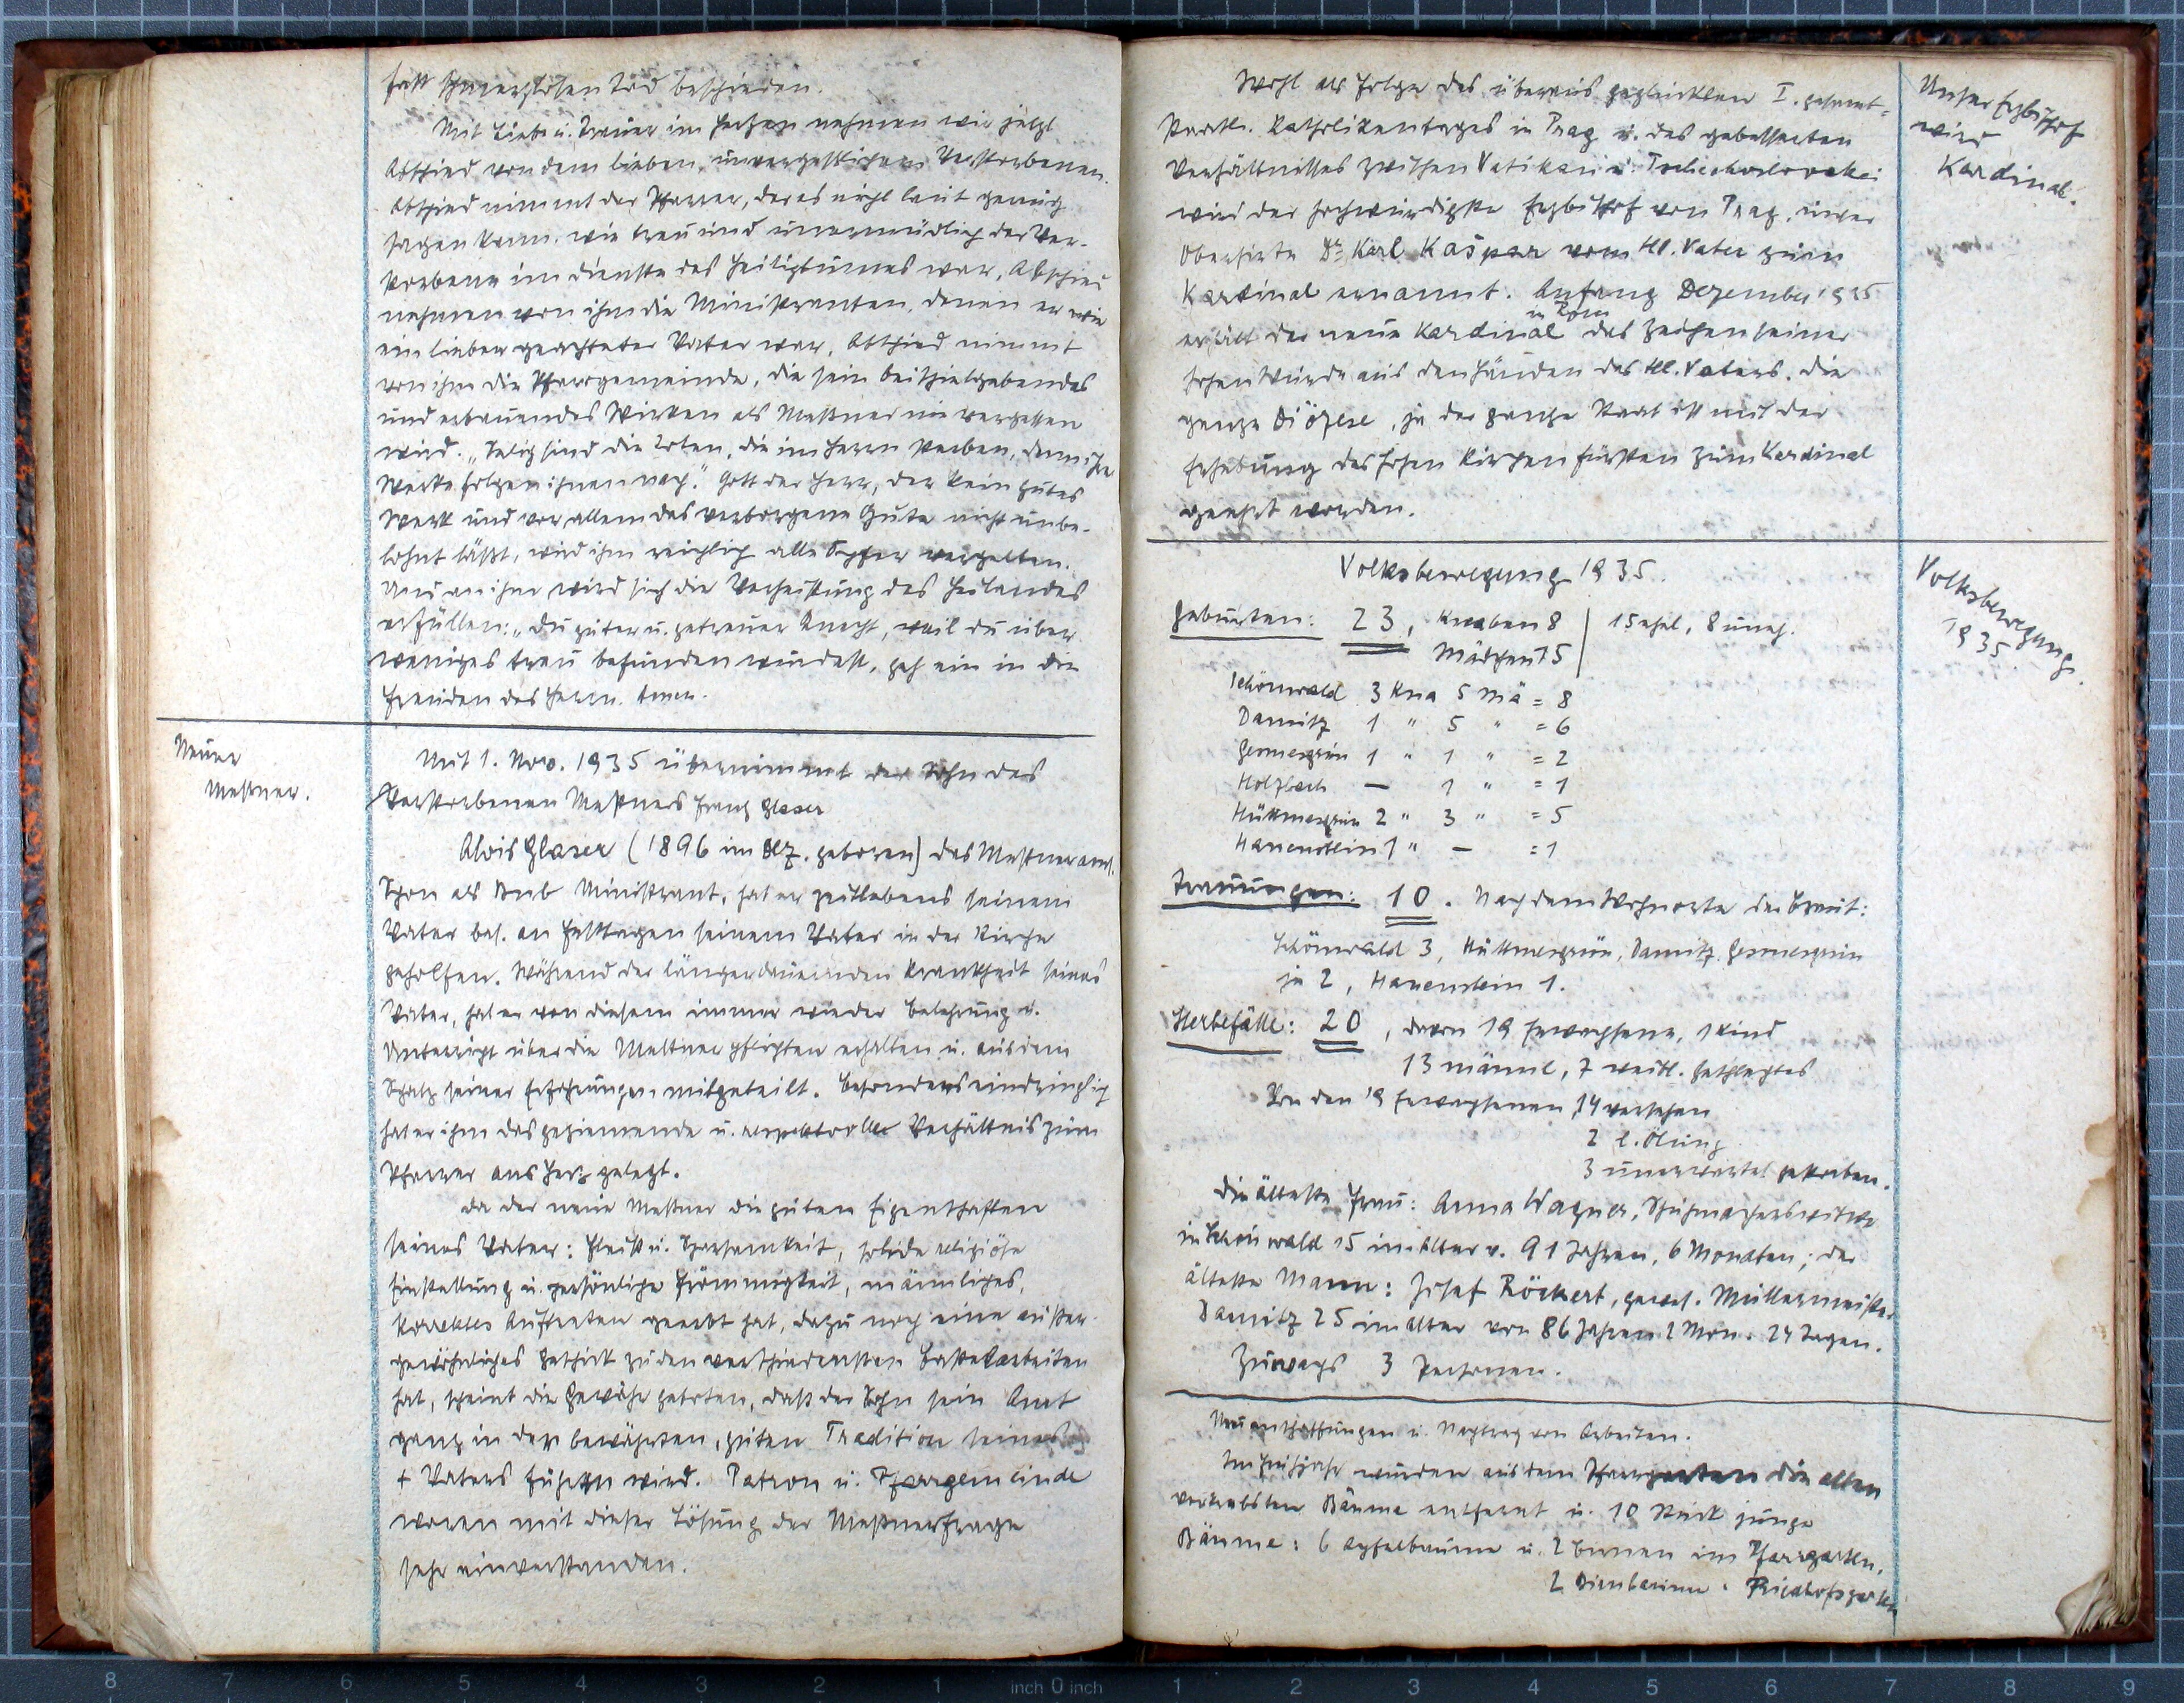 fast schmerzlosen Tod beschieden.
Mit Liebe u. Trauer im Herzen nehmen wir jetzt
Abschied von dem lieben, unvergesslichen Verstorbenen.
Abschied nimmt der Pfarrer, der es nicht laut genug
sagen kann, wie treu und unermüdlich der Ver-
storbene im Dienste des Heiligtumes war, Abschied
nehmen von ihm die Ministranten, denen er wie
ein lieber geachteter Vater war, Abschied nimmt
von ihm die Pfarrgemeinde, die sein beispielgebendes
und erbauendes Wirken als Meßner nie vergessen
wird. „Selig sind die Toten, die im Herrn sterben, denn ihre
Werke folgen ihnen nach." Gott der Herr, der kein gutes
Werk und vor allem das verborgene Gute nicht unbe-
lohnt läßt, wird ihm reichlich alle Opfer vergelten.
Und an ihm wird sich die Verheißung des Heilandes
erfüllen: „Du guter u. getreuer Knecht, weil du über
weniges treu befunden wurdest, geh ein in die
Freuden des Herrn. Amen.
Neuer
Messner.
Mit 1. Nov. 1935 übernimmt der Sohn des
Verstorbenen Meßners Franz Glaser
Alois Glaser (1896 im Dez. geboren) das Meßneramt.
Schon als Bub Ministrant, hat er zeitlebens seinem
Vater bes. an Festtagen seinem Vater in der Kirche
geholfen. Während der längerdauernden Krankheit seines
Vater, hat er von diesem immer wieder Belehrung u.
Unterricht über die Meßnerpflichten erhalten u. aus dem
Schatz seiner Erfahrungen mitgeteilt. Besonders eindringlich
hat er ihm das geziemende u. respektvolle Verhältnis zum
Pfarrer ans Herz gelegt.
Da der neue Meßner die guten Eigenschaften
seines Vaters: Fleiß u. Sparsamkeit, solide religiöse
Einstellung u. persönliche Frömmigkeit, männliches,
korrektes Auftreten geerbt hat, dazu noch eine außer-
gewöhnliches Geschick zu den verschiedensten Bastelarbeiten
hat, scheint die Gewähr geboten, daß der Sohn sein Amt
ganz in der bewährten, guten Tradition seines
+ Vaters führen wird. Patron u. Pfarrgemeinde
waren mit dieser Lösung der Meßnerfrage
sehr einverstanden.
Wohl als Folge des überaus geglückten I. gesamt-
staatl. Katholikentages in Prag u. des gebesserten
Verhältnisses zwischen Vatikan u. Tschechoslovakei
wird der hochwürdigste Erzbischof von Prag, unser
Oberhirte Dr. Karl Kašpar vom Hl. Vater zum
Kardinal ernannt. Anfang Dezember 1935
erhält der neue Kardinal in Rom das Zeichen seiner
hohen Würde aus den Händen des Hl. Vaters. Die
ganze Diözese, ja der ganze Staat ist mit der
Erhebung des hohen Kirchenfürsten zum Kardinal
geehrt worden.
Unser Erzbischof
wird
Kardinal.
Volksbewegung 1935.
Volksbewegung
1935.
Geburten: 23, Knaben 8 | 15 ehel., 8 uneh.
Mädchen 15
Schönwald 3 Kna 5 Mä = 8
Damitz 1 " 5 " = 6
Gesmesgrün 1 " 1 " = 2
Holzbach — 1 " = 1
Hüttmesgrün 2 " 3 " = 5
Hauenstein 1 " — = 1
Trauungen: 10. Nach dem Wohnorte der Braut:
Schönwald 3, Hüttmesgrün, Damitz, Gesmesgrün
je 2, Hauenstein 1.
Sterbefälle: 20, davon 19 Erwachsene, 1 Kind
13 männl., 7 weibl. Geschlechtes
Von den 19 Erwachsenen, 14 versehen
2 l. Ölung
3 unerwartet gestorben.
Die älteste Frau: Anna Wagner, Schuhmacherswitwe
in Schönwald 15 im Alter v. 91 Jahren, 6 Monaten; der
älteste Mann: Josef Röckert, gewes. Müllermeister
Damitz 25 im Alter von 86 Jahren 2 Mon. 24 Tagen.
Zuwachs 3 Personen.
Neuanschaffungen u. Nachtrag von Arbeiten.
Im Frühjahr wurden aus dem Pfarrgarten die alten
verkrebsten Bäume entfernt u. 10 Stück junge
Bäume: 6 Apfelbäume u. 2 Birnen im Pfarrgarten,
2 Birnbäume . Friedhofsgarten